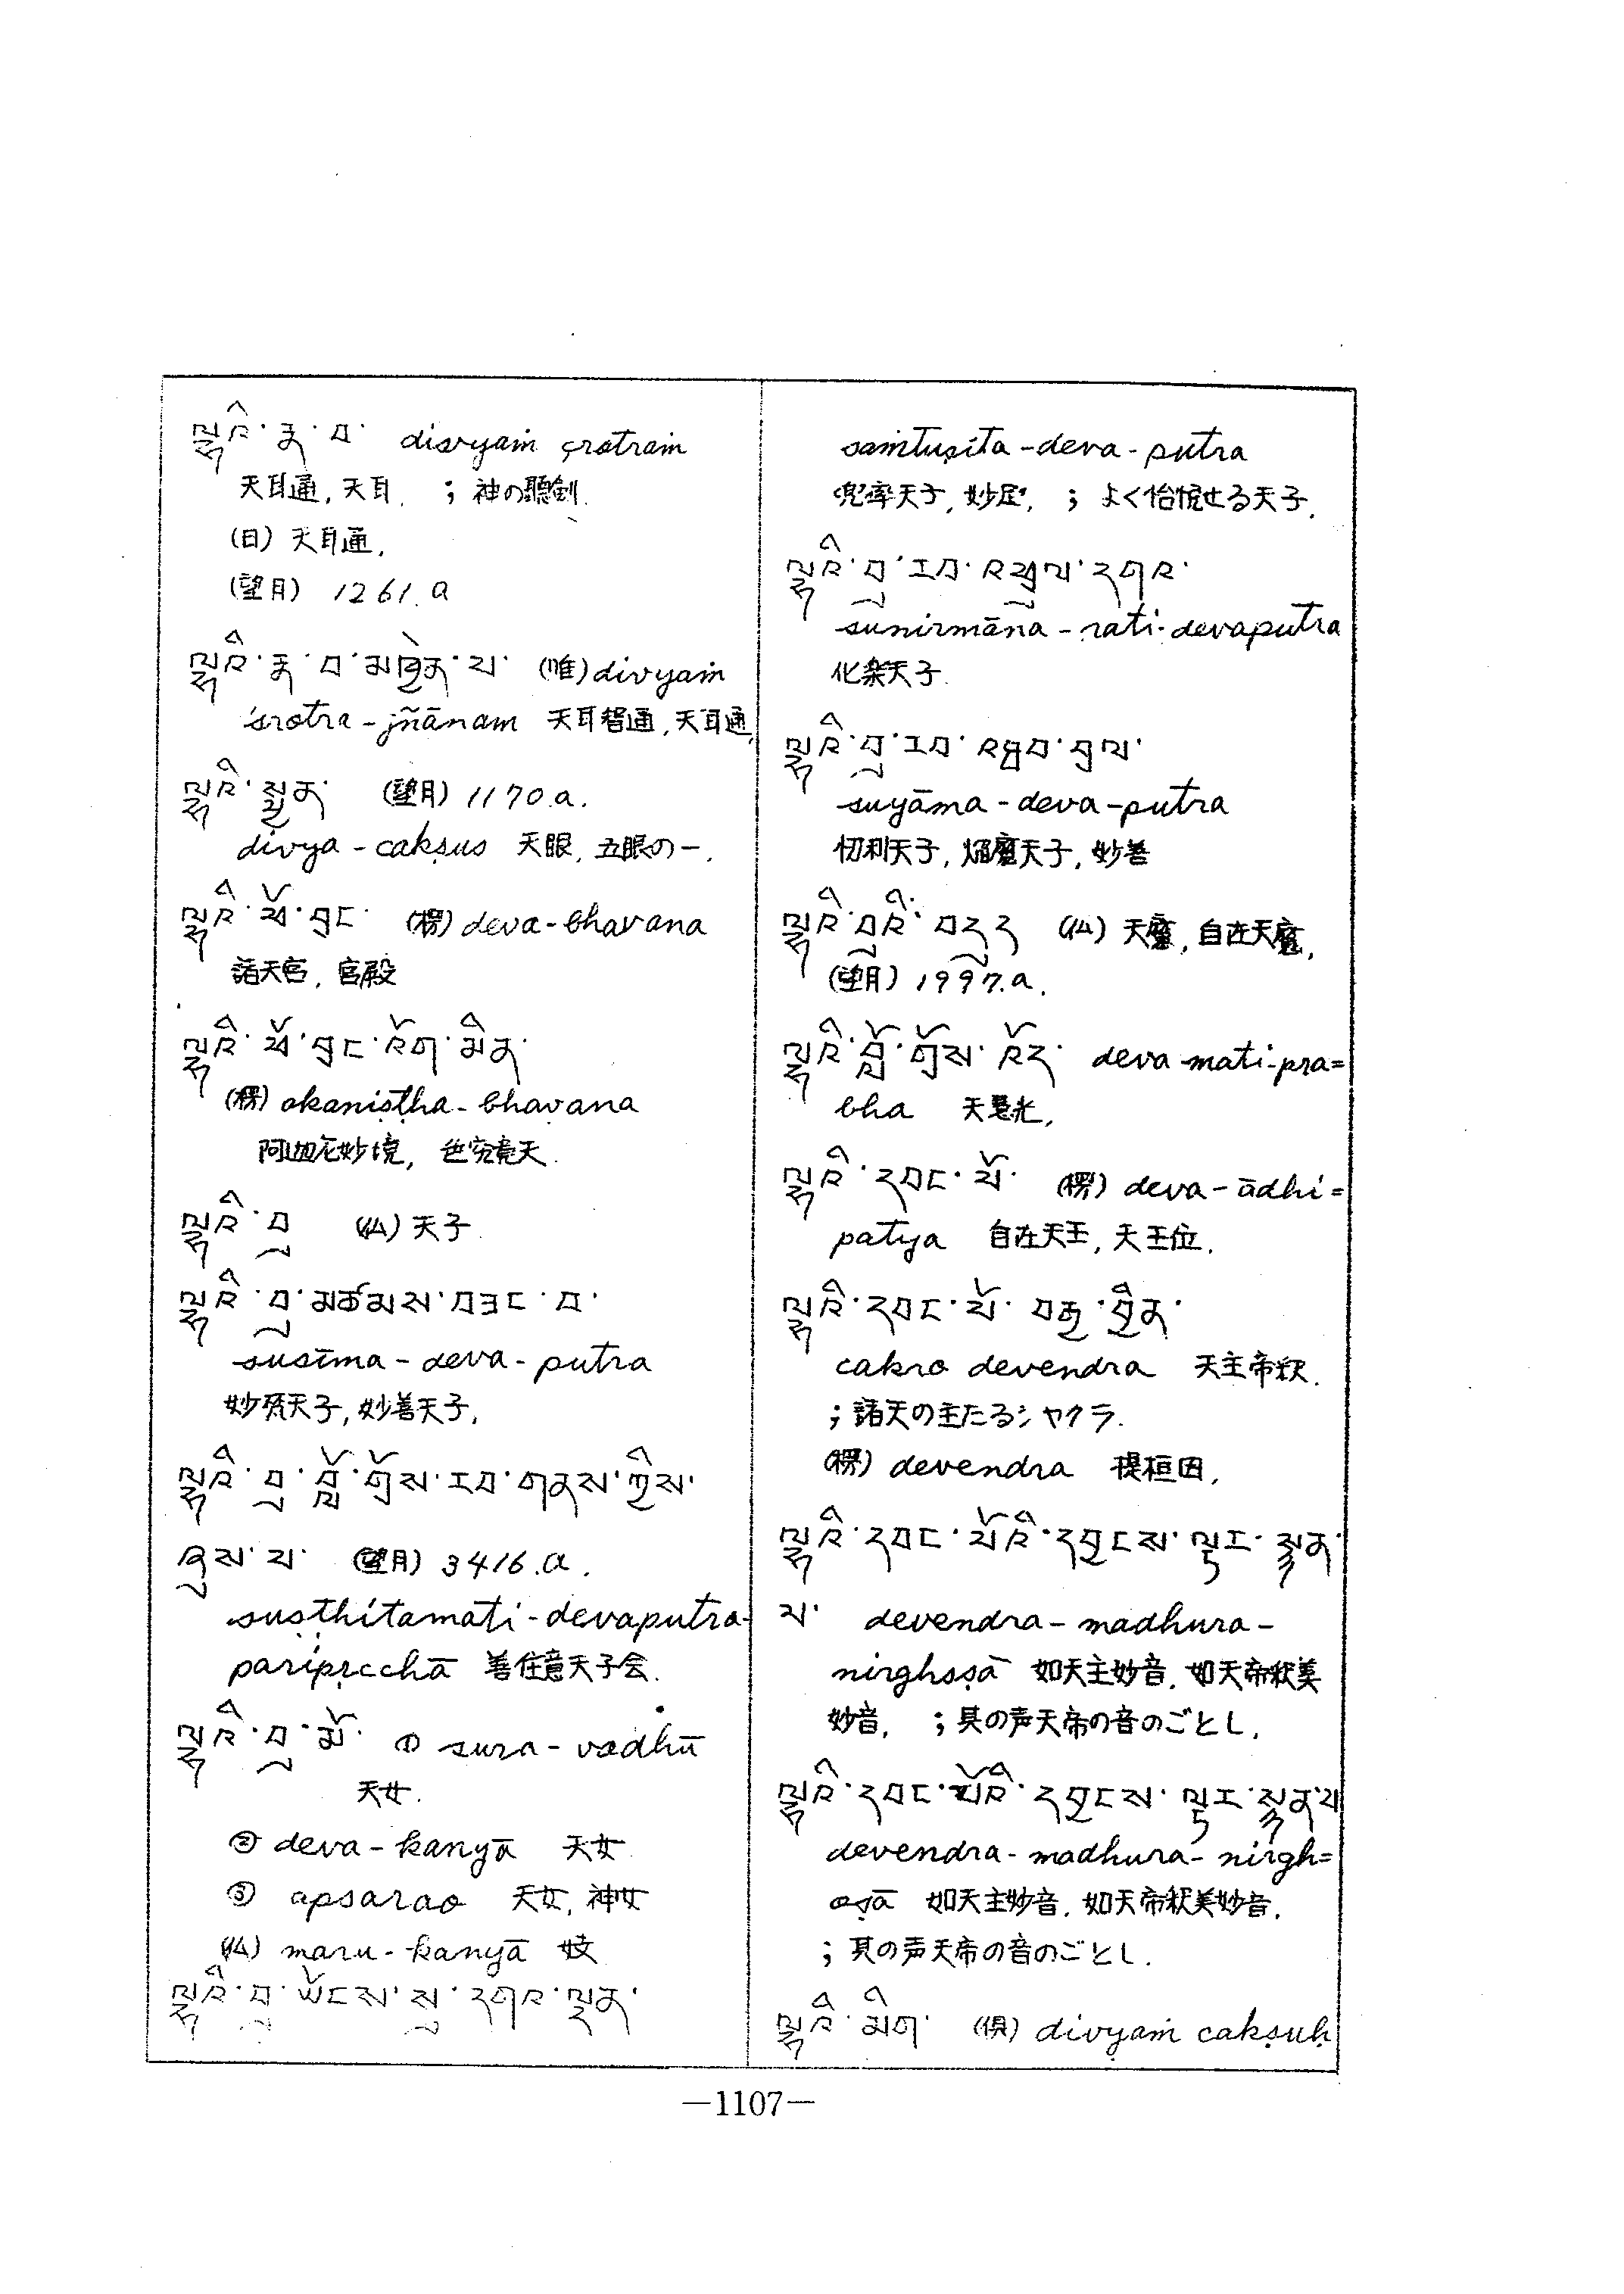 ལྷའི་རྣ་བ་ divyaṁ çrotraṁ
天耳通, 天耳. ; 神の聽制.
(日) 天耳通,
(望月) 1261.a
ལྷའི་རྣ་བ་མཁྱེན་པ་ (唯) divyaṁ
śrotra-jñānam 天耳智通, 天耳通,
ལྷའི་སྤྱན་ (望月) 1170.a.
divya-cakṣus 天眼, 五眼の一,
ལྷའི་ཕོ་བྲང་ (楞) deva-bhavana
諸天宮, 宮殿
ལྷའི་ཕོ་བྲང་འོག་མིན་
(楞) akaniṣṭha-bhavana
阿迦尼妙境, 色究竟天.
ལྷའི་བུ (仏) 天子.
ལྷའི་བུ་མཚམས་བཟང་བ་
susīma-deva-putra
妙天子, 妙善天子,
ལྷའི་བུ་བློ་གྲོས་རབ་གནས་ཀྱིས་
ཞུས་པ་ (望月) 3416.a.
susthitamati-devaputra-
paripṛcchā 善住意天子会.
ལྷའི་བུ་མོ་ ① sura-vadhū
天女.
② deva-kanyā 天女
③ apsarao 天女, 神女
(仏) maru-kanyā 妓
ལྷའི་བུ་ཡོངས་སུ་དགའ་ལྡན་
saṁtuṣita-deva-putra
兜率天子, 妙足, ; よく怡悦せる天子.
ལྷའི་བུ་རབ་འཕྲུལ་དགའ་
sunirmāṇa-rati-devaputra
化楽天子.
ལྷའི་བུ་རབ་འཐབ་བྲལ་
suyāma-deva-putra
忉利天子, 焔魔天子, 妙善
ལྷའི་བུའི་བདུད (仏) 天魔, 自在天魔,
(望月) 1997.a.
ལྷའི་བློ་གྲོས་འོད་ deva-mati-pra=
bha 天慧光,
ལྷའི་དབང་པོ་ (楞) deva-ādhi=
patya 自在天王, 天王位.
ལྷའི་དབང་པོ་བརྒྱ་བྱིན་
cakro devendra 天主帝釈.
; 諸天の主たるシャクラ.
(楞) devendra 提桓因,
ལྷའི་དབང་པོའི་དབྱངས་ལྟར་སྙན་
པ་ devendra-madhura-
nirghoṣā 如天主妙音. 如天帝釈美
妙音, ; 其の声天帝の音のごとし,
ལྷའི་དབང་པོའི་དབྱངས་ལྟར་སྙན་པ
devendra-madhura-nirgh=
oṣā 如天主妙音. 如天帝釈美妙音.
; 其の声天帝の音のごとし.
ལྷའི་མིག་ (倶) divyaṁ cakṣuḥ
—1107—